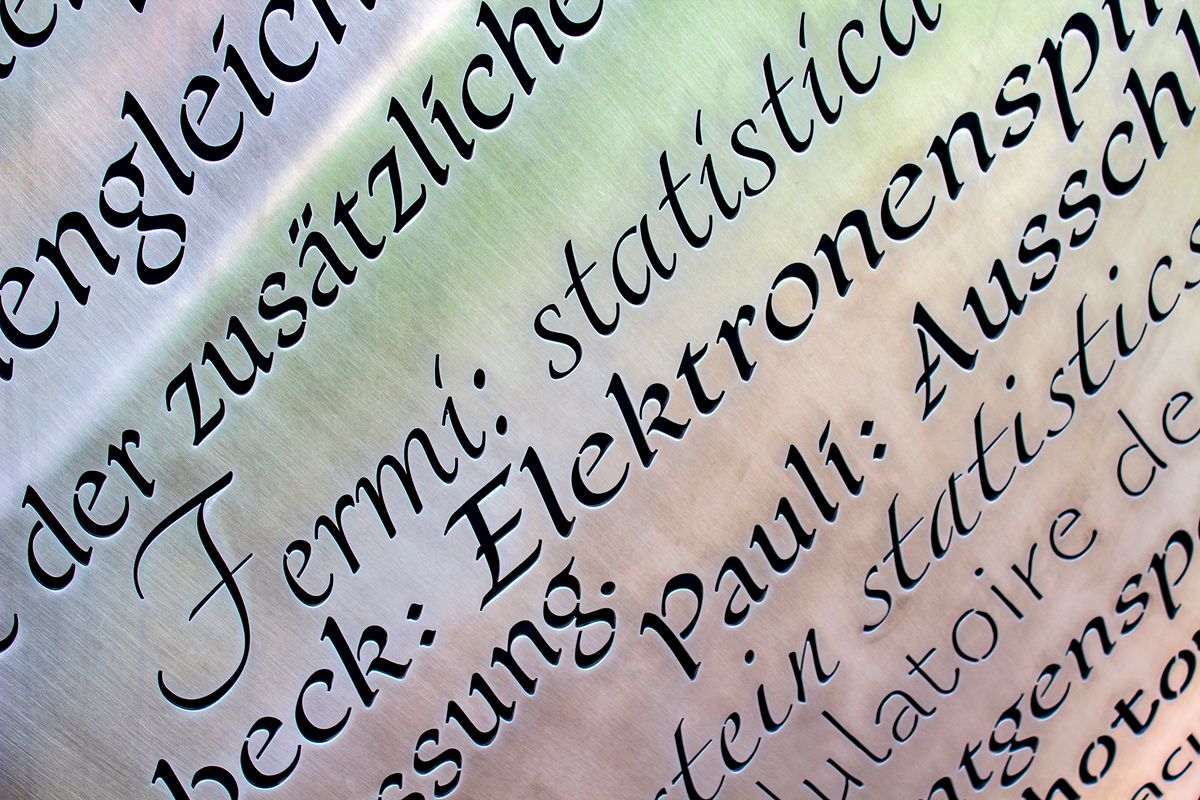 engleich
der zusätzliche
Fermi: statistica
beck: Elektronenspin
ssung. pauli: Aussch
tein statistics
ulatoire de
ntgensp
hoto